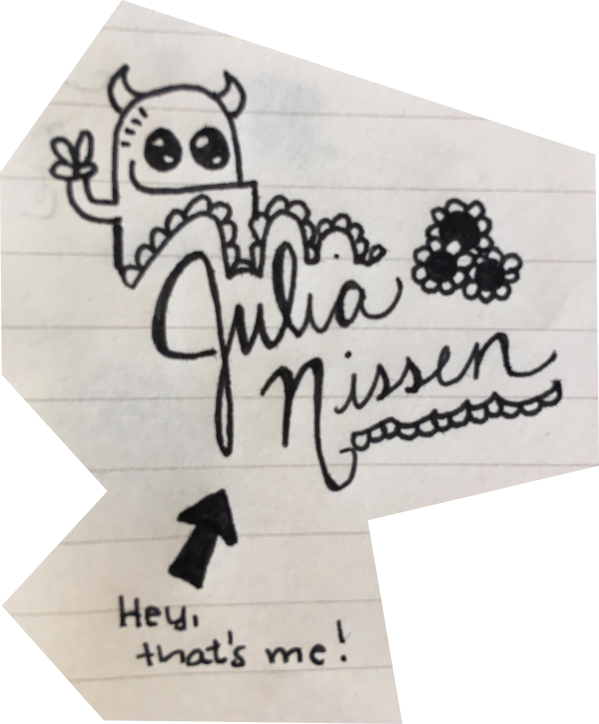 Julia
Nissen
Hey,
that's me!